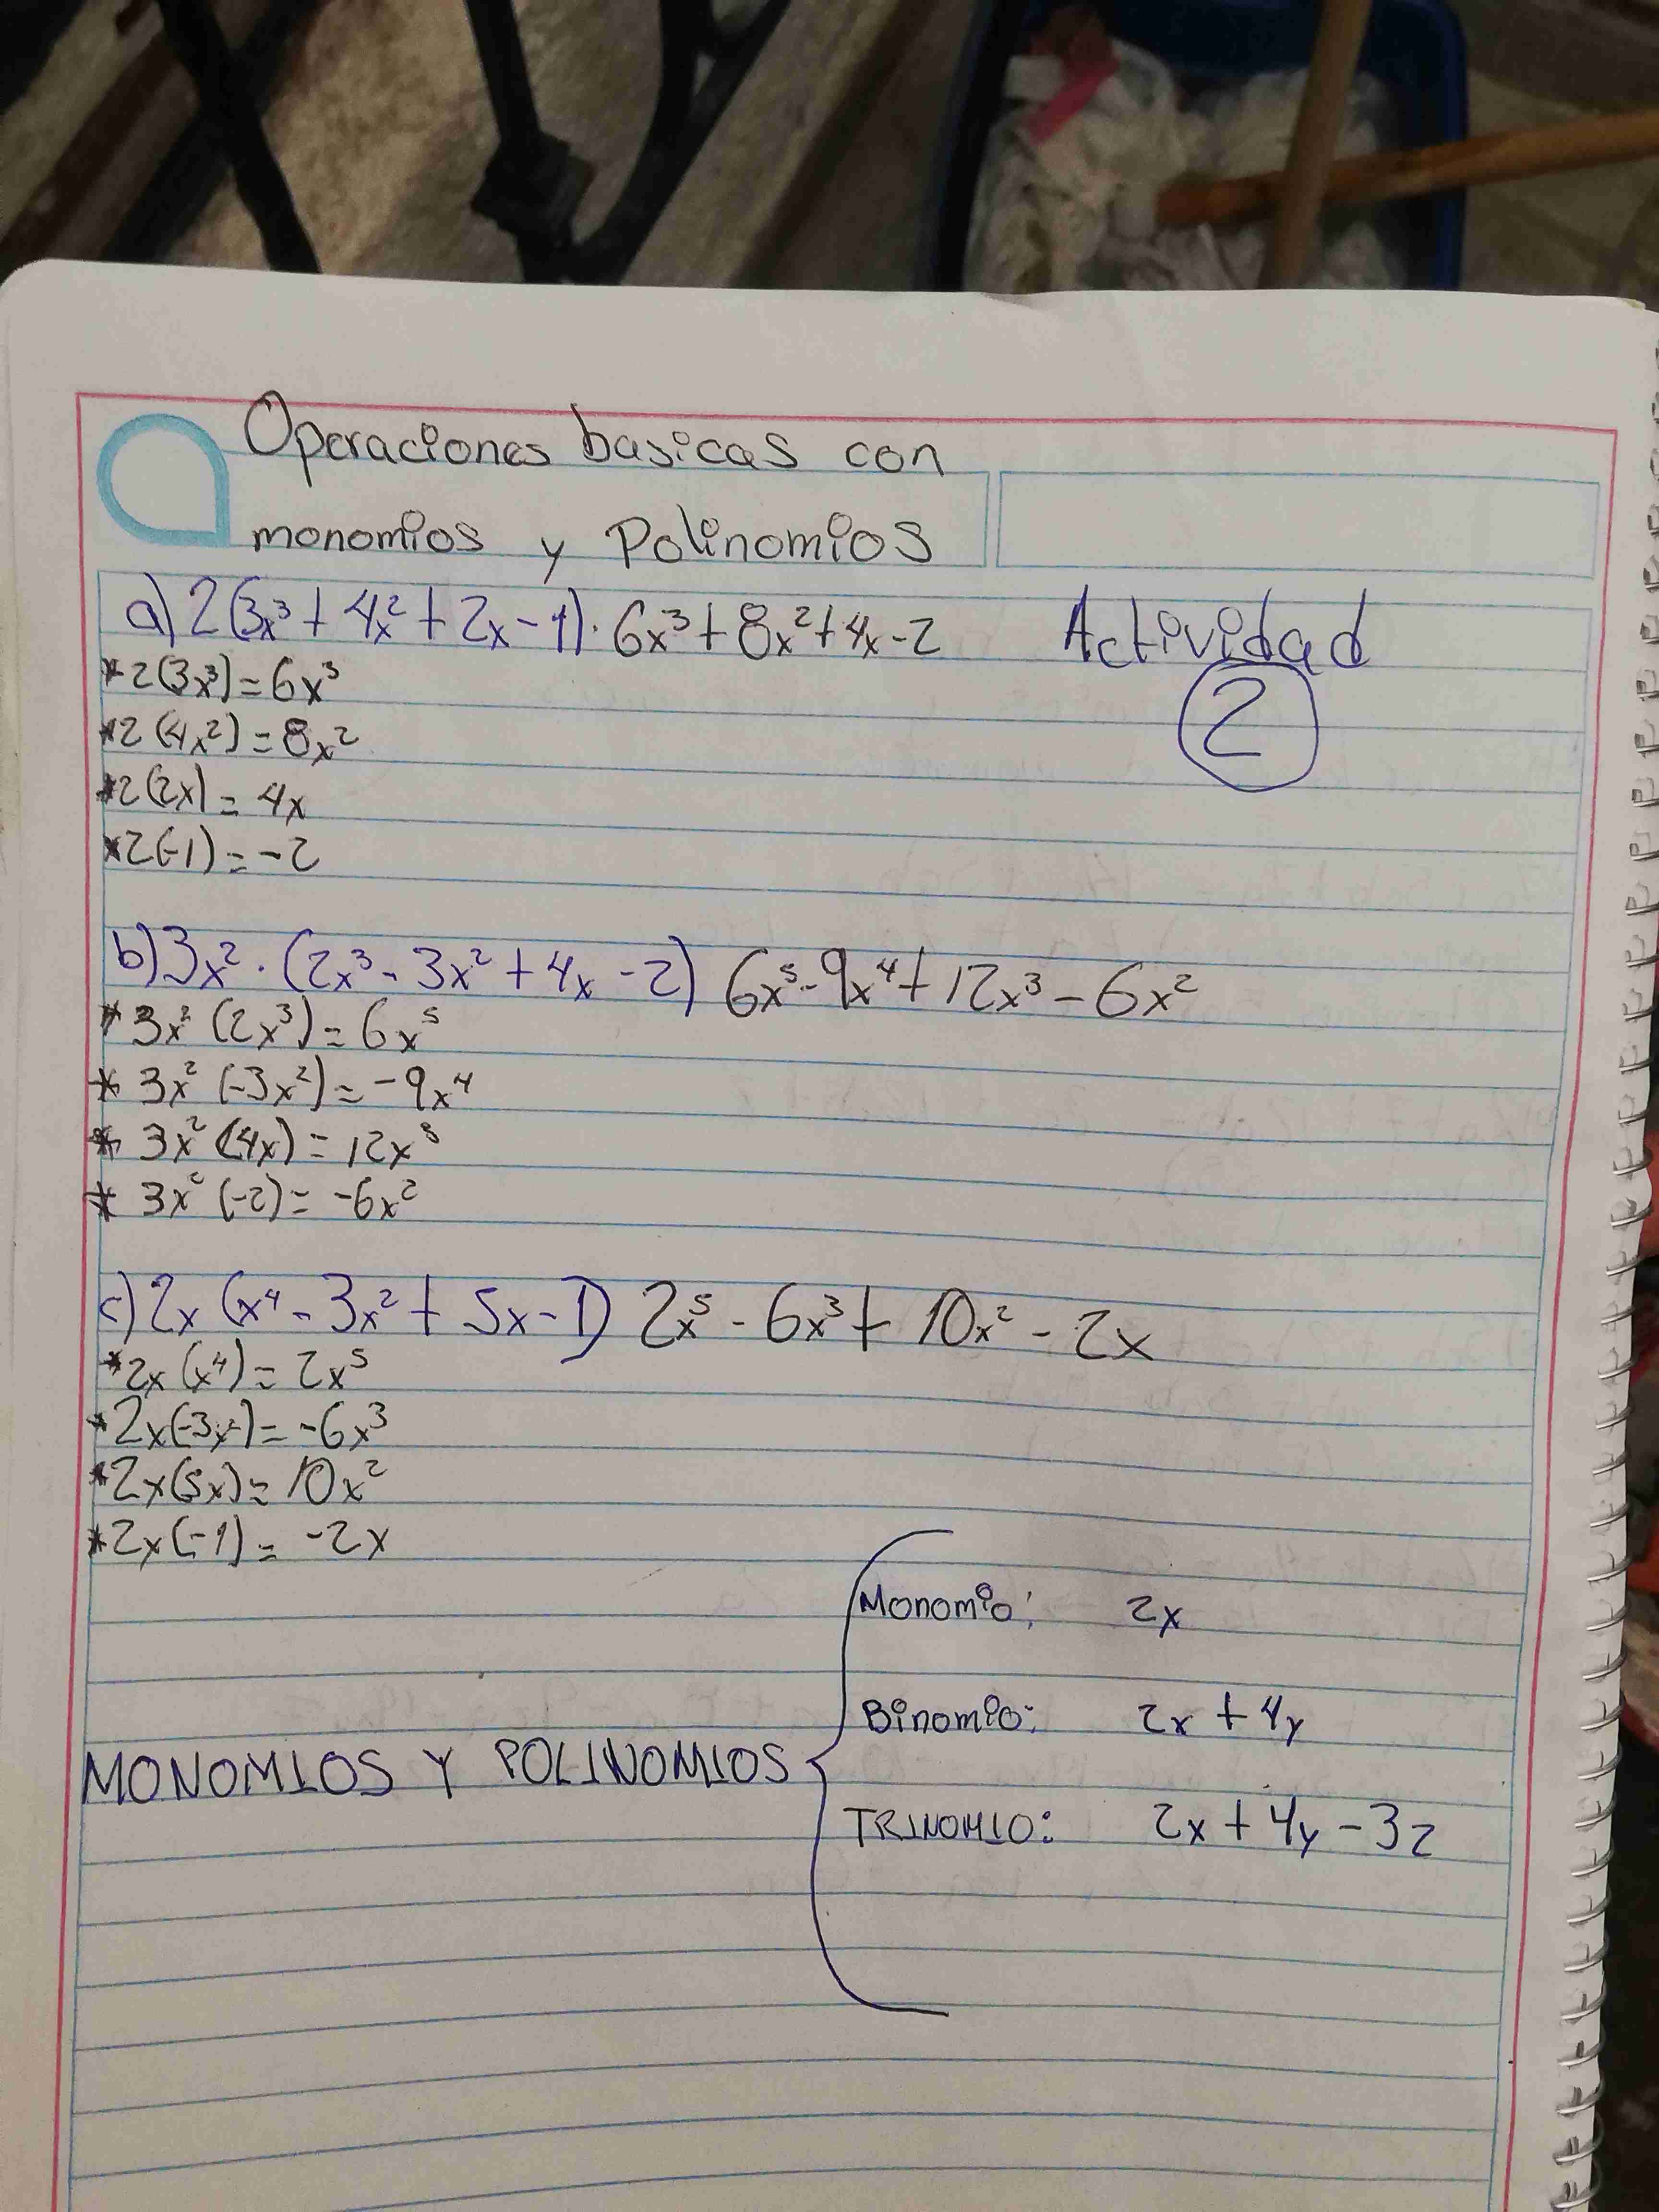 Operaciones basicas con
monomios y Polinomios
a) 2(3x³ + 4x² + 2x - 1) · 6x³ + 8x² + 4x - 2
Actividad
2
*2(3x³) = 6x³
*2(4x²) = 8x²
*2(2x) = 4x
*2(-1) = -2
b) 3x² · (2x³ - 3x² + 4x - 2) 6x⁵ - 9x⁴ + 12x³ - 6x²
* 3x² (2x³) = 6x⁵
* 3x² (-3x²) = -9x⁴
* 3x² (4x) = 12x³
* 3x² (-2) = -6x²
c) 2x (x⁴ - 3x² + 5x - 1) 2x⁵ - 6x³ + 10x² - 2x
*2x (x⁴) = 2x⁵
*2x(-3x²) = -6x³
*2x(5x) = 10x²
*2x(-1) = -2x
MONOMIOS Y POLINOMIOS
Monomio: 2x
Binomio: 2x + 4y
TRINOMIO: 2x + 4y - 3z